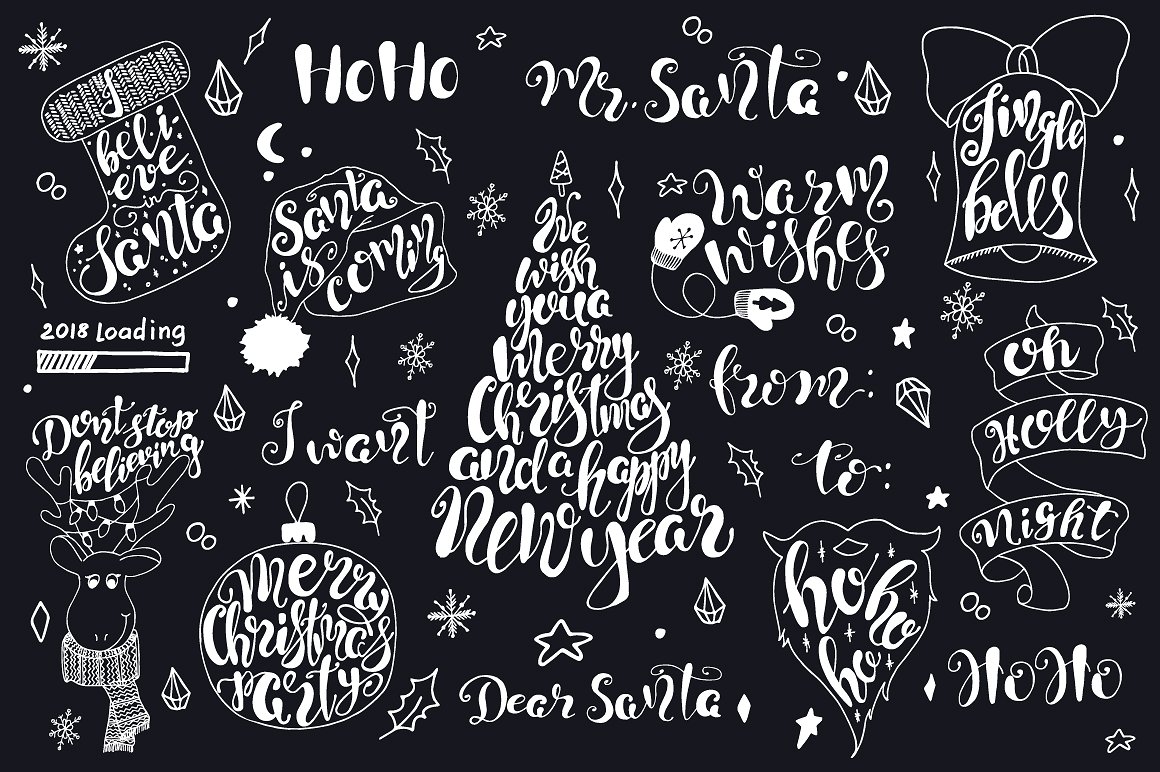 I
beli-
eve
in
Santa
HoHo
Mr. Santa
Jingle
bells
Santa
is
coming
Warm
wishes
We
wish
you a
Merry
Christmas
and a happy
New year
2018 Loading
from:
to:
oh
Holly
Night
Dont stop
believing
I want
Merry
Christmas
party
Dear Santa
hoho
ho
HoHo